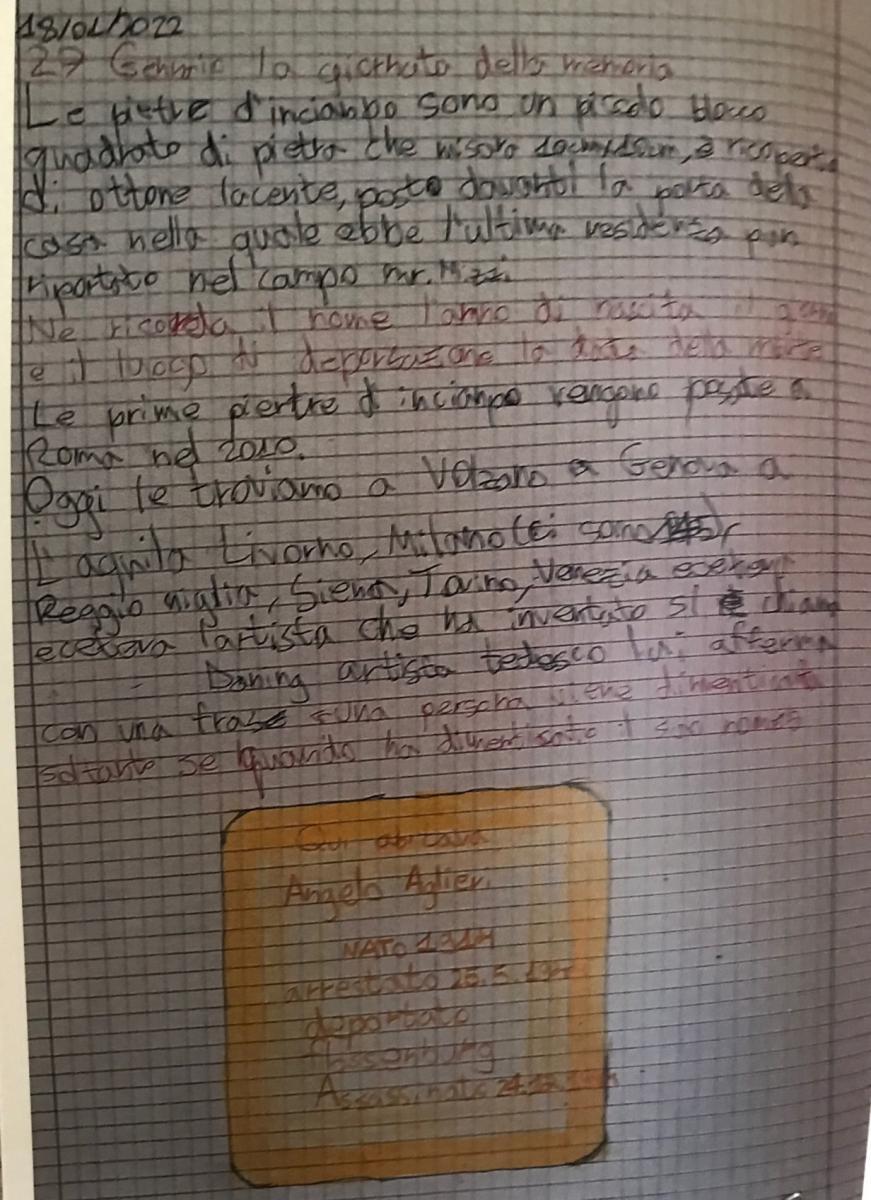 18/01/2022
27 Gennaio la giornata della memoria
Le pietre d'inciambo sono un piccolo blocco
quadrato di pietra che misora 10cmx10cm, è ricoperta
di ottone lacente, posto davanti la porta della
casa nella quale ebbe l'ultima residenza
nel campo
Ne ricorda il nome l'anno di nascita il
e il luogo di deportazione la data della morte
Le prime piertre d inciampo vengono poste a
Roma nel 2010.
Oggi le troviamo a Volzano a Genova a
L'aquila Livorno, Milano (ci sono
Reggio Siena, Torino, Venezia
eccetera l'artista che ha inventato si
Daning artista tedesco lui afferma
con una frase una persona viene dimenticata
soltanto se quando ha dimentisato il suo nome
Qui abitava
Angelo Aglieri
NATO 1914
arrestato 25.5.
deportato
Assassinato 24.12.